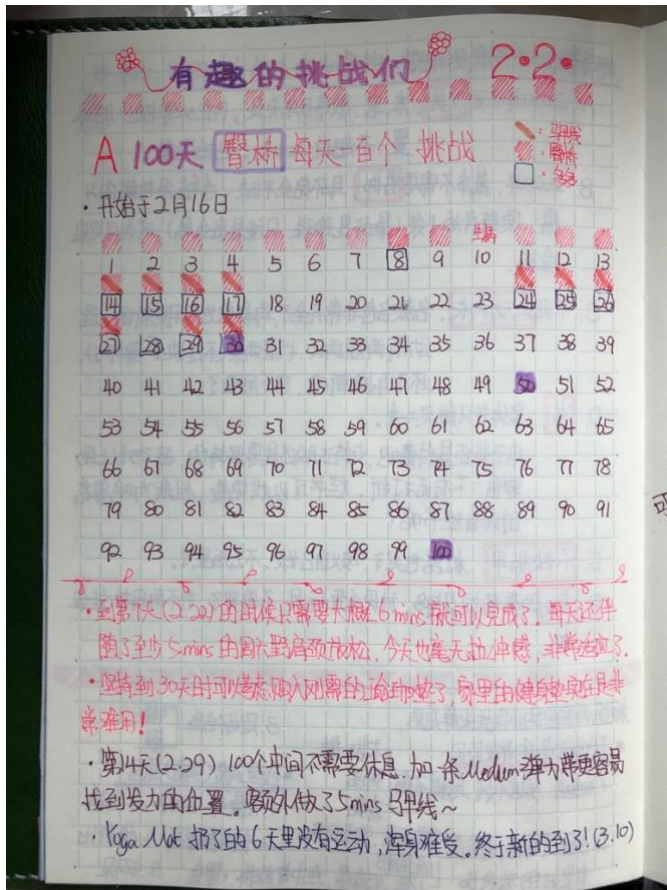 有趣的挑战们 2·2·
A 100天 臀桥 每天一百个 挑战
: 马甲线
: 臀桥
· 开始于2月16日
生病
1 2 3 4 5 6 7 8 9 10 11 12 13
14 15 16 17 18 19 20 21 22 23 24 25 26
27 28 29 30 31 32 33 34 35 36 37 38 39
40 41 42 43 44 45 46 47 48 49 50 51 52
53 54 55 56 57 58 59 60 61 62 63 64 65
66 67 68 69 70 71 72 73 74 75 76 77 78
79 80 81 82 83 84 85 86 87 88 89 90 91
92 93 94 95 96 97 98 99 100
· 到第7天(2.22)的时候只需要大概6mins就可以完成了。每天还伴
随了至少5mins的周六野肩颈放松，今天也毫无拉伸感，非常适应了。
· 坚持到30天时可以考虑购入刚需的瑜伽垫了，家里的健身垫实在是非
常难用！
· 第14天(2.29) 100个中间不需要休息，加一条Medium弹力带更容易
找到发力的位置。额外做了5mins马甲线~
· Yoga Mat 扔了的6天里没有运动，浑身难受。终于新的到了！(3.10)